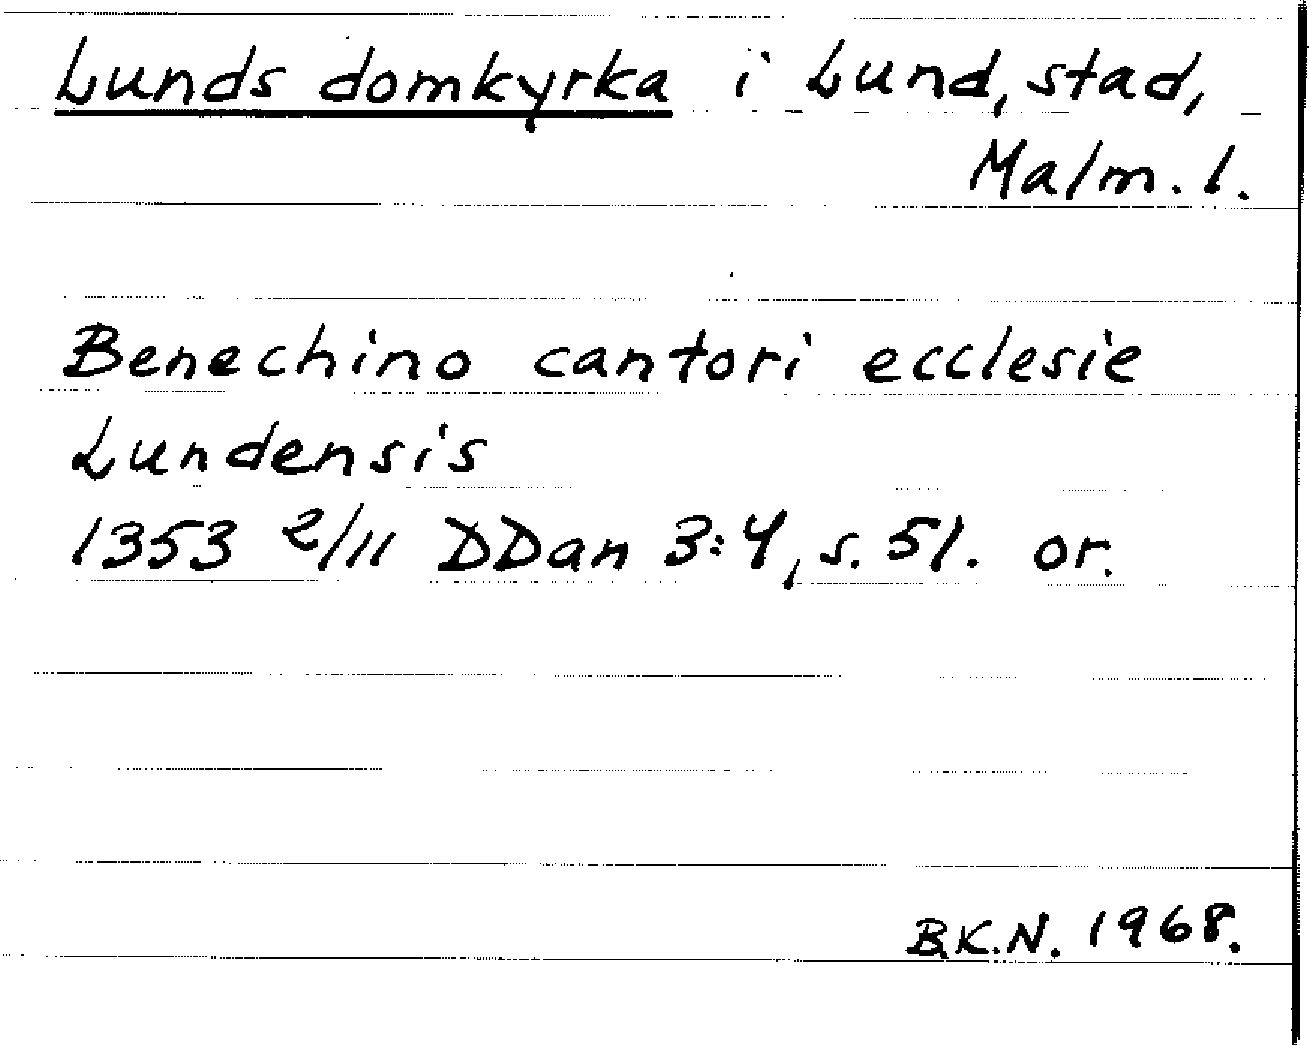 Lunds domkyrka i Lund, stad,
Malm. l.
Benechino cantori ecclesie
Lundensis
1353 2/11 DDan 3:4, s. 51. or.
B.K.N. 1968.